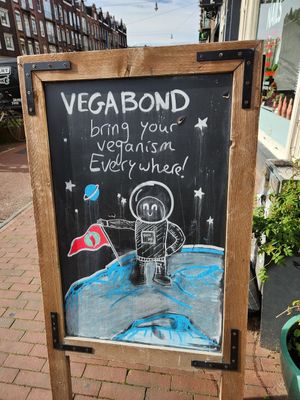 VEGABOND
bring your
veganism
Everywhere!